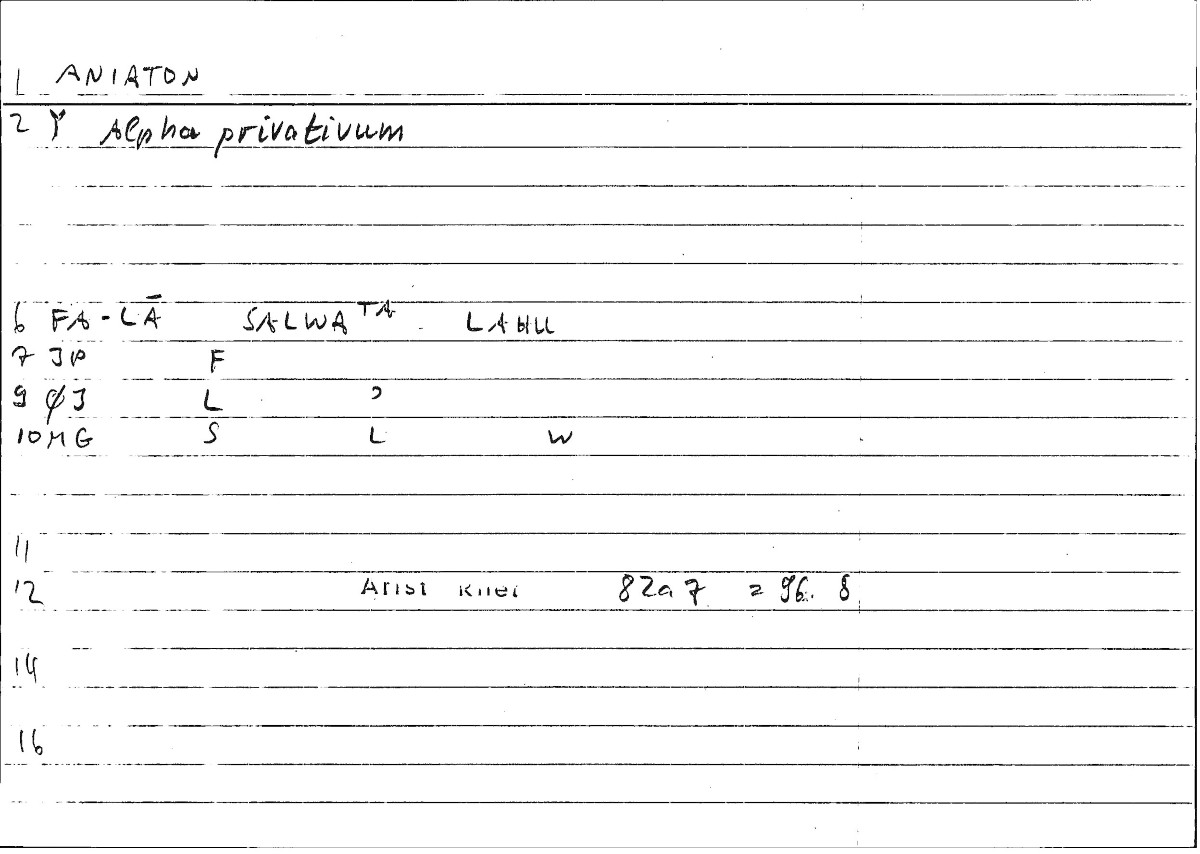 1 ANIATON
2 Alpha privativum
6 FA-LĀ SALWATA LAHU
7 JP F
9 ØJ L ʾ
10 MG S L W
11
12 Arist Rhet 82a7 = 96. 8
14
16